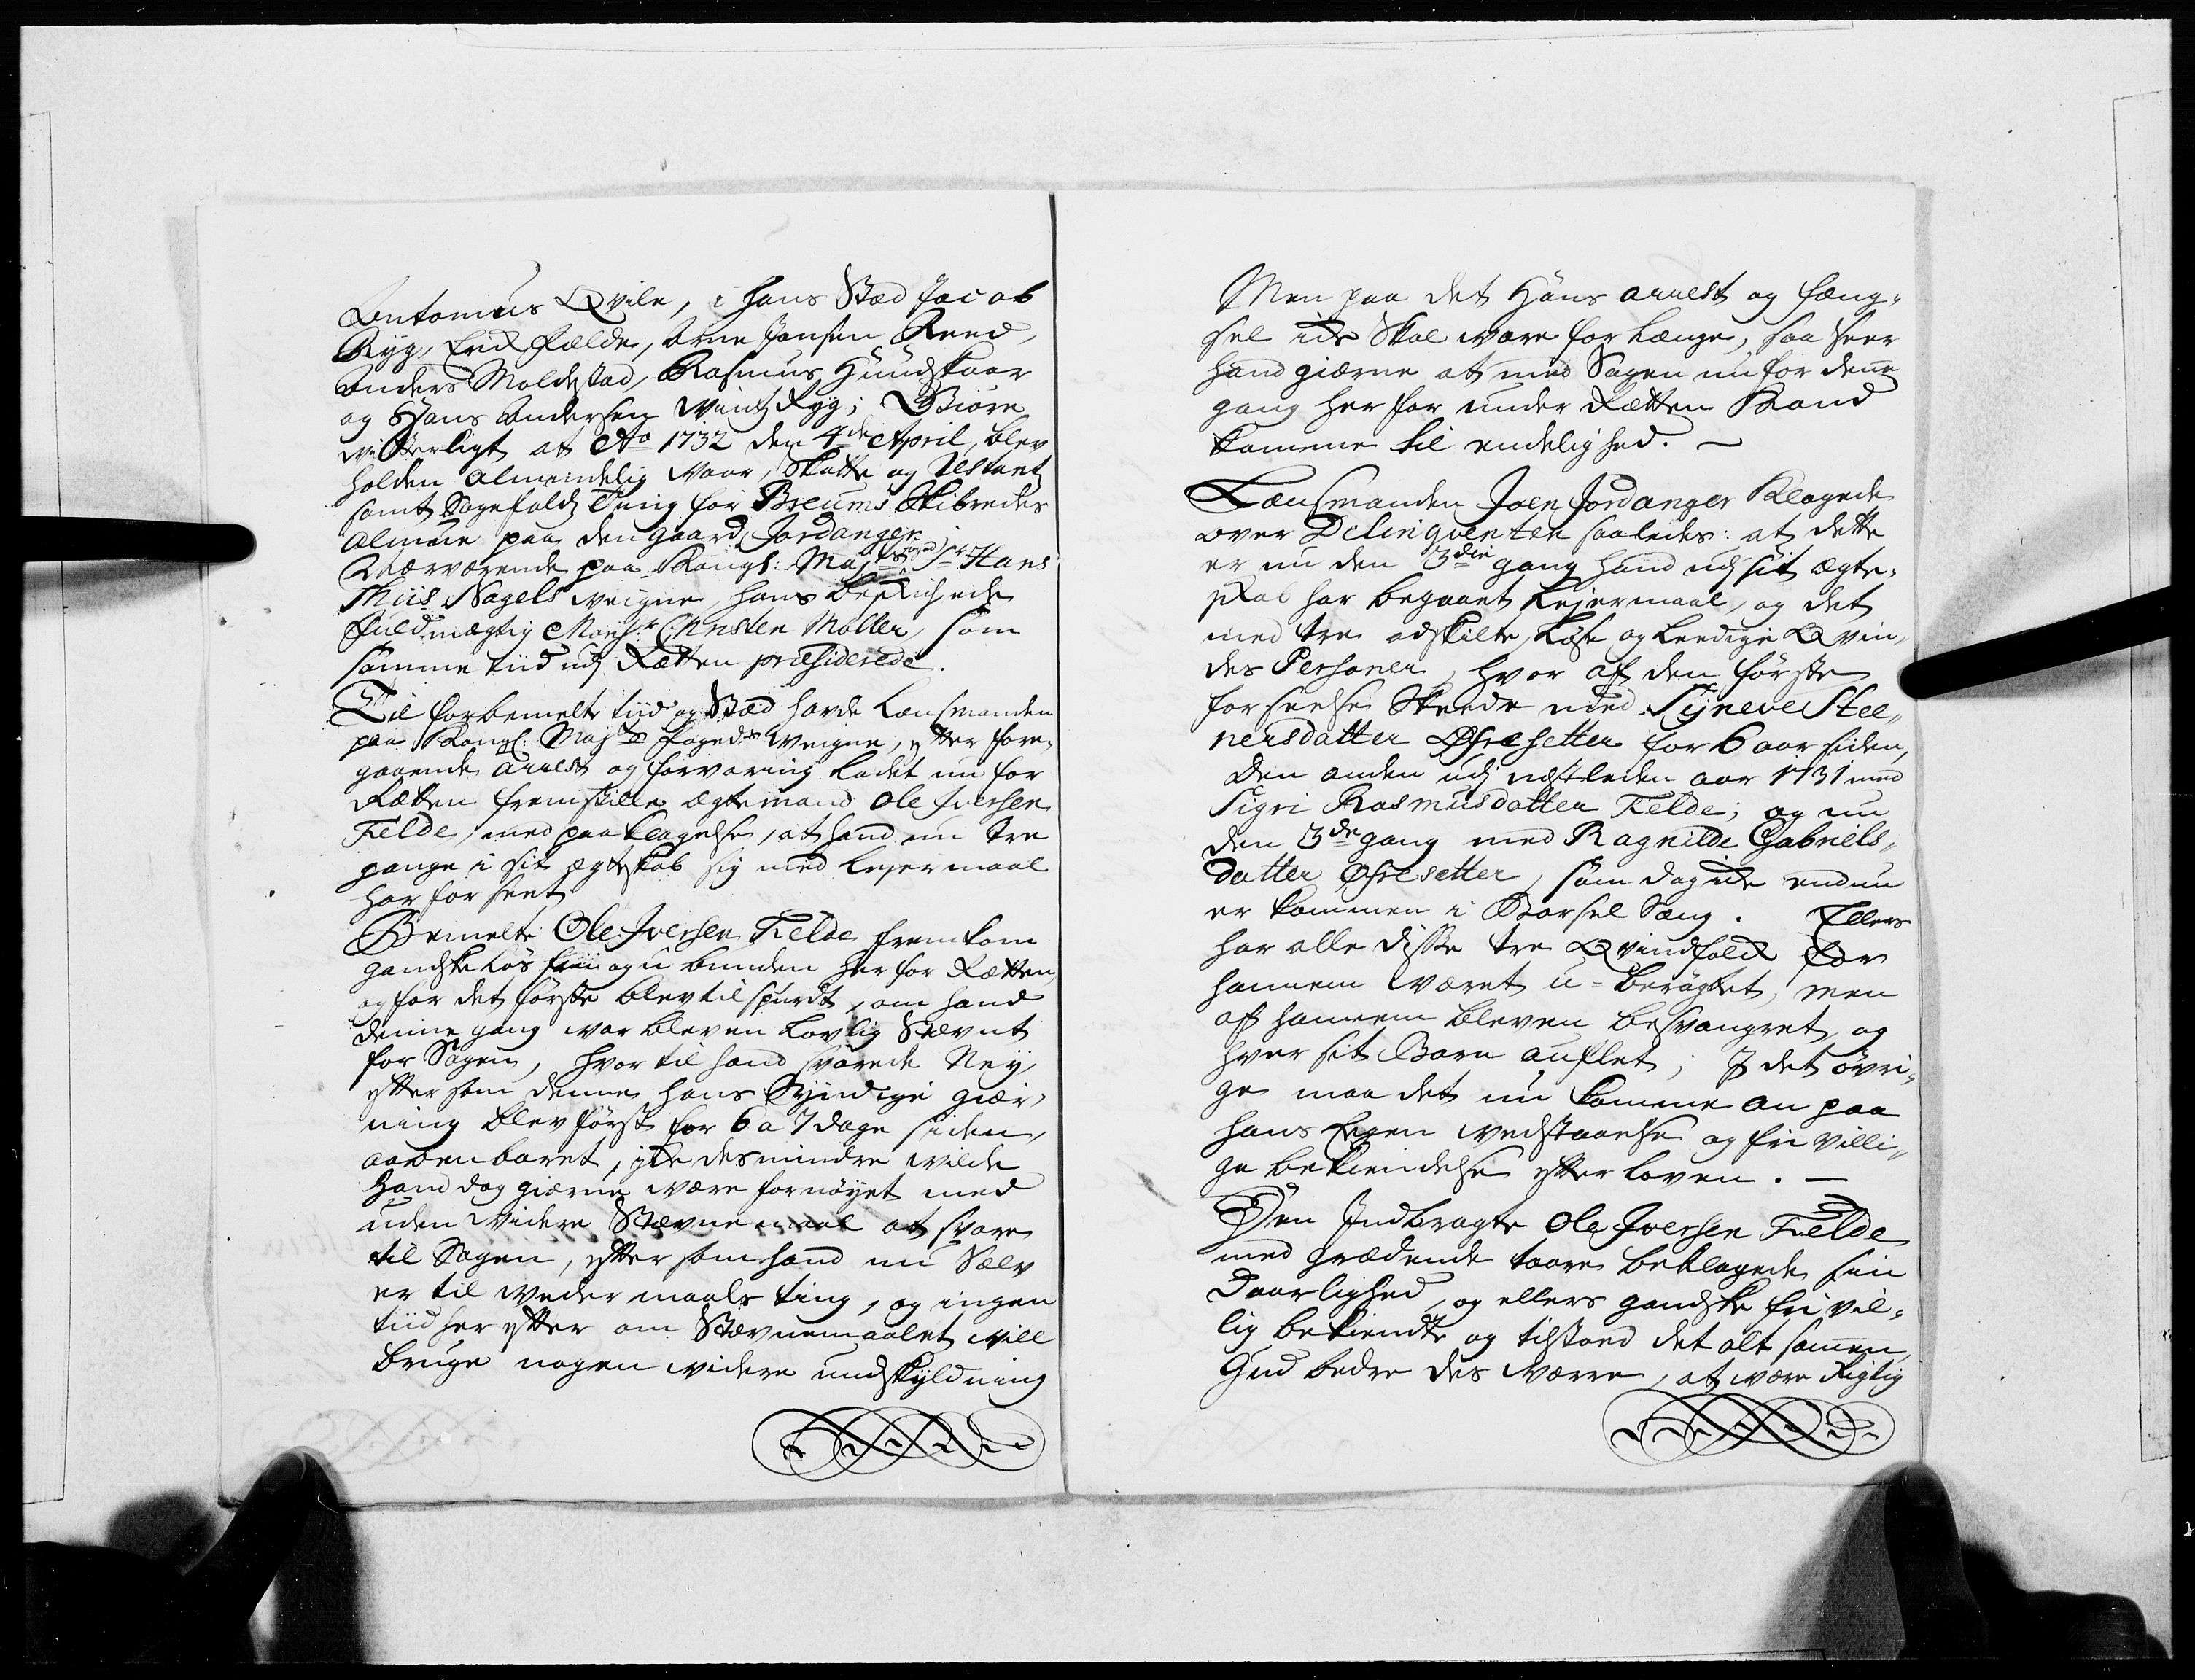 Antonius Qvile, i hans Stæd Jacob
Ryg, Erick Felde, Arne Jansen Reed,
Anders Moldestad, Rasmus Hundskaar
og Hans Andersen Ryg; Giøre
witterligt at Ao 1732 den 4de April, blev
holden Almindelig Vaar, Skatte og Restantz
samt Sagefalds Ting for Breums Skibredes
Almue paa den gaard Jordanger.
Nærværende paa Kongl: Majts foged Sr Hans
Thiis Nagels weigne, hans beskichede
fuldmægtig Monsr Christen Møller, som
samme tiid udj Rætten præsiderede.
Til forbemelte tiid og Stæd hafde Lænsmanden
paa Kongl: Majts fogeds weigne, efter fore-
gaaende arrest og forvaring ladet nu for
Rætten fremstille ægtemand Ole Iversen
Felde, med paaklagelse, at hand nu tre
gange i sit ægteskab sig med lejermaal
har forseet
Bemelte Ole Iversen Felde fremkom
gandske løs frii og u bunden her for Rætten,
og for det første blev tilspurdt, om hand
denne gang war bleven lovlig Stævnt
for Sagen, hvortil hand svarede Ney,
eftersom denne hans Syndige giær-
ning blev først for 6 a 7 dage siden
aabenbaret, icke desmindre wilde
hand dog giærne være fornøyet med
uden widere Stævnemaal at svare
til Sagen, eftersom hand nu Sælv
er til wedermaals ting, og ingen
tiid her efter om Stævnemaalet will
bruge nogen widere undskyldning
Men paa det Hans arrest og fæng-
sel icke Skal ware for længe, saa seer
hand giærne at med Sagen nu for denne
gang her for under Rætten Kand
komme til endelighed. —
Lænsmanden Joen Jordanger Klagede
over Delinqventen saaledes: at dette
er nu den 3die gang hand udj sit ægte-
skab har begaaet Lejermaal, og det
med tre adskilte, løse og leedige Qvin-
des Personer, hvor af den første
forseelse Skeede med Syneve Stee-
nersdatter Øfresetter for 6 aar siden,
Den anden udj nestleden aar 1731 med
Sigri Rasmusdatter Felde; og nu
den 3de gang med Ragnilde Gabriels-
datter Øfresetter, som dog icke endnu
er kommen i Barsel Sæng. Ellers
har alle disse tre Qvindfolck for
hannem været u-berøgtet, men
af hannem bleven besvangret, og
hver sit Barn auflet; I det øvri-
ge maa det nu komme an paa
hans Egen wedstaaelse og fri villi-
ge bekiendelse efter loven. —
Den Indbragte Ole Iversen Felde
med grædende taare beklagede sin
Daarlighed, og ellers gandske fri vil-
lig bekiendte og tilstoed det alt sammen,
Gud bedre des værre, at være Rigtig